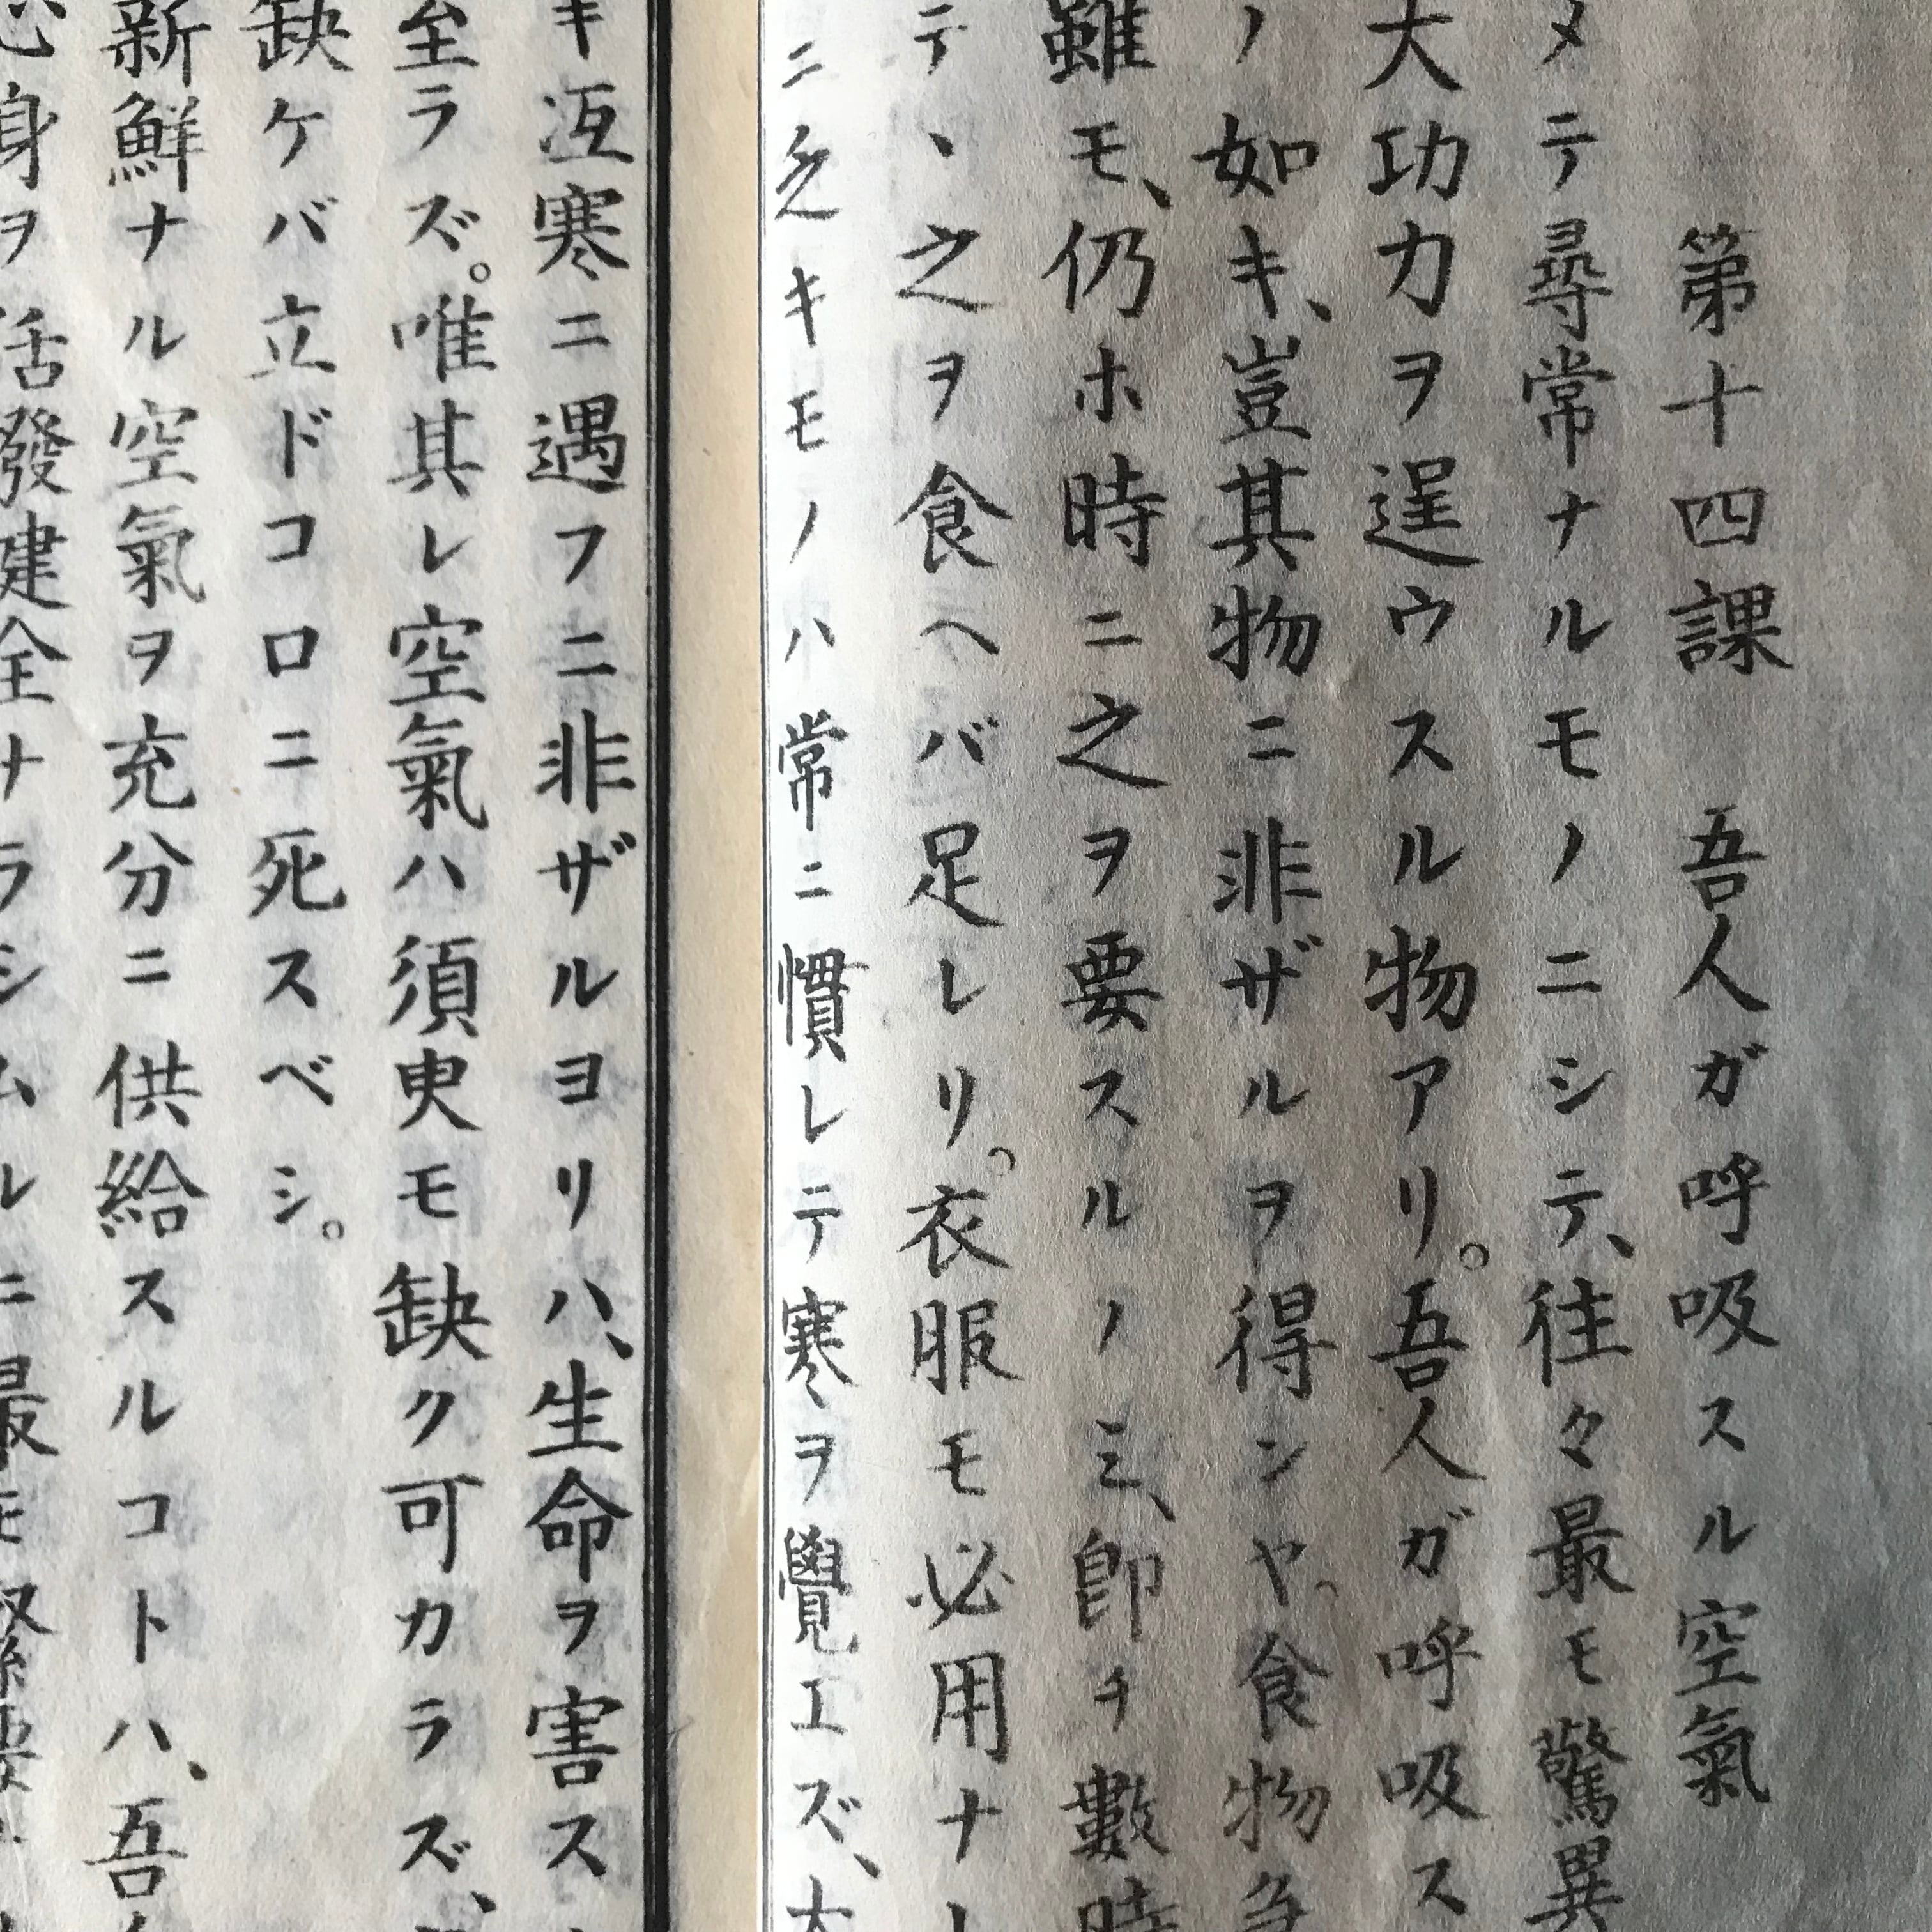 第十四課　吾人ガ呼吸スル空氣
メテ尋常ナルモノニシテ、往々最モ驚異
大功力ヲ逞ウスル物アリ。吾人ガ呼吸ス
ノ如キ、豈其物ニ非ザルヲ得ンヤ。食物
雖モ、仍ホ時ニ之ヲ要スルノミ、卽チ數時
テ、之ヲ食ヘバ足レリ。衣服モ必用ナ
ニ乏キモノハ常ニ慣レテ寒ヲ覺エズ、大
キ冱寒ニ遇フニ非ザルヨリハ、生命ヲ害ス
至ラズ。唯其レ空氣ハ須臾モ缺ク可カラズ、
缺ケバ立ドコロニ死スベシ。
新鮮ナル空氣ヲ充分ニ供給スルコトハ、吾
身ヲ活發建全ナラシムルニ最モ緊要